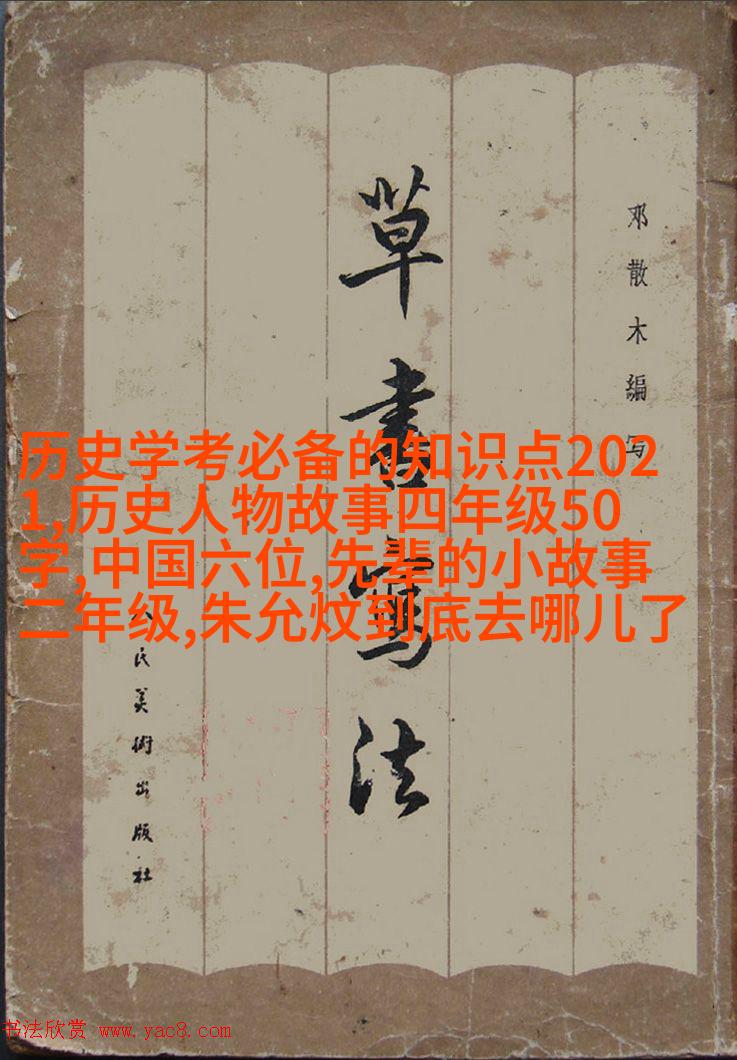 邓散木編写
草書寫法
人民美術出版社
历史学考必备的知识点202
1,历史人物故事四年级50
字,中国六位,先辈的小故事
二年级,朱允炆到底去哪儿了
书法欣赏 www.yac8.com